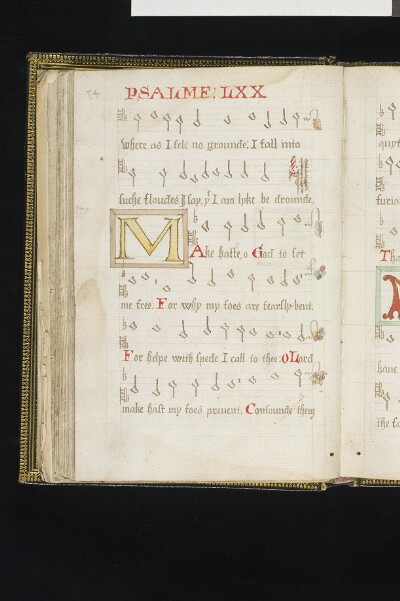 74
PSALME: LXX
Where as I felt no grounde; I fall into
suche floudes I say, yt I am lyke be drounde.
MAke haste, o God to set
me free. For why my foes are fearsly bent.
For helpe with spede I call to thee: O Lord
make hast my foes prevent, Confounde them
quyt
furio
Tho
haue
the fo